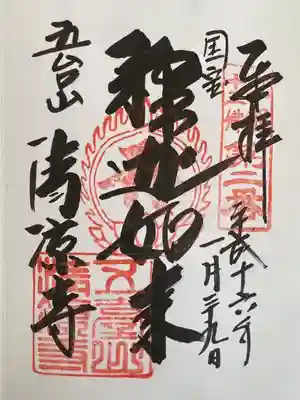 奉拝
平成十六年
一月二十九日
国宝
釈迦如来
五台山
清凉寺